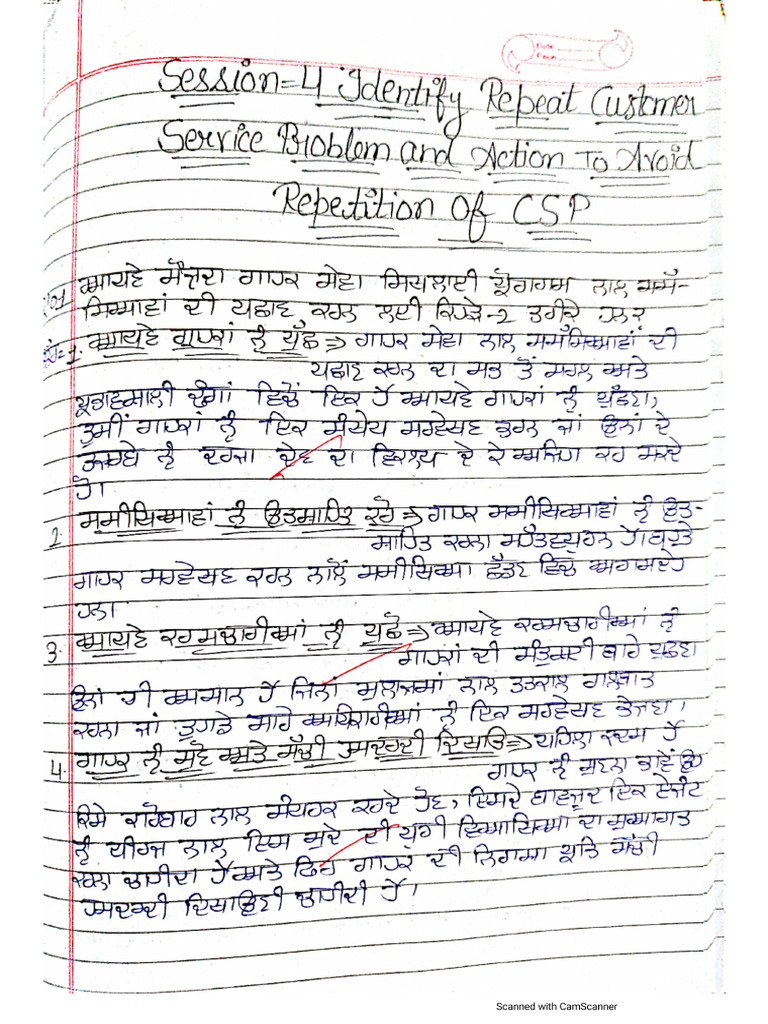 Session=4 Identify Repeat Customer
Service Problem and Action To Avoid
Repetition Of CSP
ਆਪਣੇ ਮੌਜੂਦਾ ਗਾਹਕ ਸੇਵਾ ਸਿਖਲਾਈ ਪ੍ਰੋਗਰਾਮ ਨਾਲ ਸਮੱ-
ਸਿਆਵਾਂ ਦੀ ਪਛਾਣ ਕਰਨ ਲਈ ਕਿਹੜੇ-2 ਤਰੀਕੇ ਹਨ?
1. ਆਪਣੇ ਗਾਹਕਾਂ ਨੂੰ ਪੁੱਛੋ ⇒ ਗਾਹਕ ਸੇਵਾ ਨਾਲ ਸਮੱਸਿਆਵਾਂ ਦੀ
ਪਛਾਣ ਕਰਨ ਦਾ ਸਭ ਤੋਂ ਸਰਲ ਅਤੇ
ਪ੍ਰਭਾਵਸ਼ਾਲੀ ਢੰਗਾਂ ਵਿਚੋਂ ਇਕ ਹੈ ਆਪਣੇ ਗਾਹਕਾਂ ਨੂੰ ਪੁੱਛਣਾ,
ਤੁਸੀਂ ਗਾਹਕਾਂ ਨੂੰ ਇਕ ਸੰਖੇਪ ਸਰਵੇਖਣ ਭਰਨ ਜਾਂ ਉਨਾਂ ਦੇ
ਨੂੰ ਦਰਜਾ ਦੇਣ ਦਾ ਵਿਕਲਪ ਦੇ ਕੇ ਅਜਿਹਾ ਕਰ ਸਕਦੇ
ਹੋ।
2. ਸਮੀਖਿਆਵਾਂ ਨੂੰ ਉਤਸ਼ਾਹਿਤ ਕਰੋ ⇒ ਗਾਹਕ ਸਮੀਖਿਆਵਾਂ ਨੂੰ ਉਤ-
ਸ਼ਾਹਿਤ ਕਰਨਾ ਮਹੱਤਵਪੂਰਨ ਹੈ।
ਗਾਹਕ ਸਰਵੇਖਣ ਕਰਨ ਨਾਲੋਂ ਸਮੀਖਿਆ ਛੱਡਣ ਵਿਚ
ਹਨ।
3. ਆਪਣੇ ਕਰਮਚਾਰੀਆਂ ਨੂੰ ਪੁਛੋ ⇒ ਆਪਣੇ ਕਰਮਚਾਰੀਆਂ ਨੂੰ
ਗਾਹਕਾਂ ਦੀ ਸੰਤੁਸ਼ਟੀ ਬਾਰੇ ਪੁਛਣਾ
ਉਨਾਂ ਹੀ ਅਸਾਨ ਹੈ ਜਿਨਾਂ ਮੁਲਾਜ਼ਮਾਂ ਨਾਲ ਤਤਕਾਲ ਗਲਬਾਤ
ਕਰਨਾ ਜਾਂ ਤੁਹਾਡੇ ਸਾਰੇ ਨੂੰ ਇਕ ਸਰਵੇਖਣ ਭੇਜਣਾ।
4. ਗਾਹਕ ਨੂੰ ਸੁਣੋ ਅਤੇ ਸੱਚੀ ਹਮਦਰਦੀ ਦਿਖਾਓ ⇒ ਪਹਿਲਾ ਕਦਮ ਹੈ
ਗਾਹਕ ਨੂੰ ਸੁਣਨਾ ਭਾਵੇਂ ਉਹ
ਕਿਸੇ ਕਾਰੋਬਾਰ ਨਾਲ ਸੰਪਰਕ ਕਰਦੇ ਹੋਣ, ਇਸਦੇ ਬਾਵਜੂਦ ਇਕ ਏਜੰਟ
ਨੂੰ ਧੀਰਜ ਨਾਲ ਇਸ ਮੁਦੇ ਦੀ ਪੂਰੀ ਵਿਆਖਿਆ ਦਾ ਸੁਆਗਤ
ਕਰਨਾ ਚਾਹੀਦਾ ਹੈ ਅਤੇ ਫਿਰ ਗਾਹਕ ਦੀ ਨਿਰਾਸ਼ਾ ਪ੍ਰਤਿ ਸੱਚੀ
ਹਮਦਰਦੀ ਦਿਖਾਉਣੀ ਚਾਹੀਦੀ ਹੈ।
Scanned with CamScanner